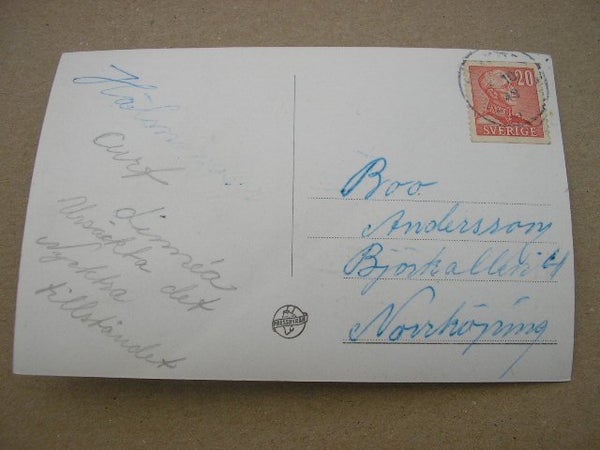 Hälsningar
Curt Linnéa
Ursäkta det
nyktra
tillståndet
20
SVERIGE
Boo
Andersson
Björkallén 4
Norrköping
PRESSBYRÅN